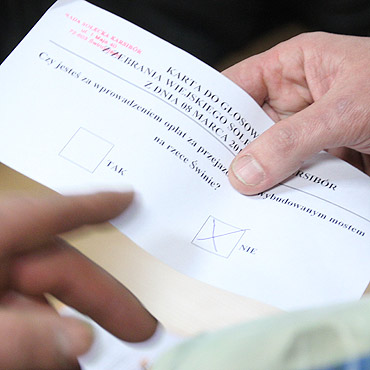 RADA SOŁECKA KARSIBÓR
KARTA DO GŁOSOW
ZEBRANIA WIEJSKIEGO SOŁ
Z DNIA 08 MARCA 20
RSIBÓR
Czy jesteś za wprowadzeniem opłat za przejazd wybudowanym mostem
na rzece Świnie?
TAK
NIE